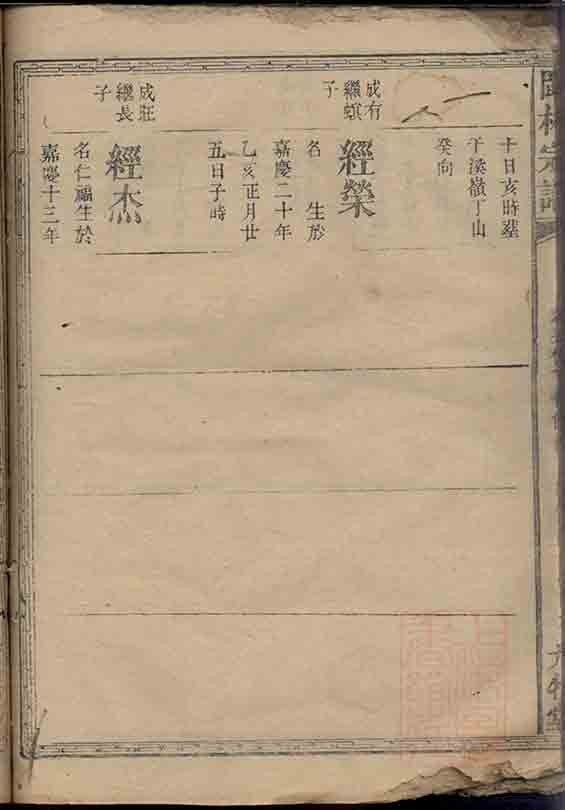 十日亥時塟
干溪嶺丁山
癸向
成有
繼蟥
子
經榮
名 生於
嘉慶二十年
乙亥正月廿
五日子時
成莊
繼長
子
經杰
名仁福生於
嘉慶十三年
宗譜